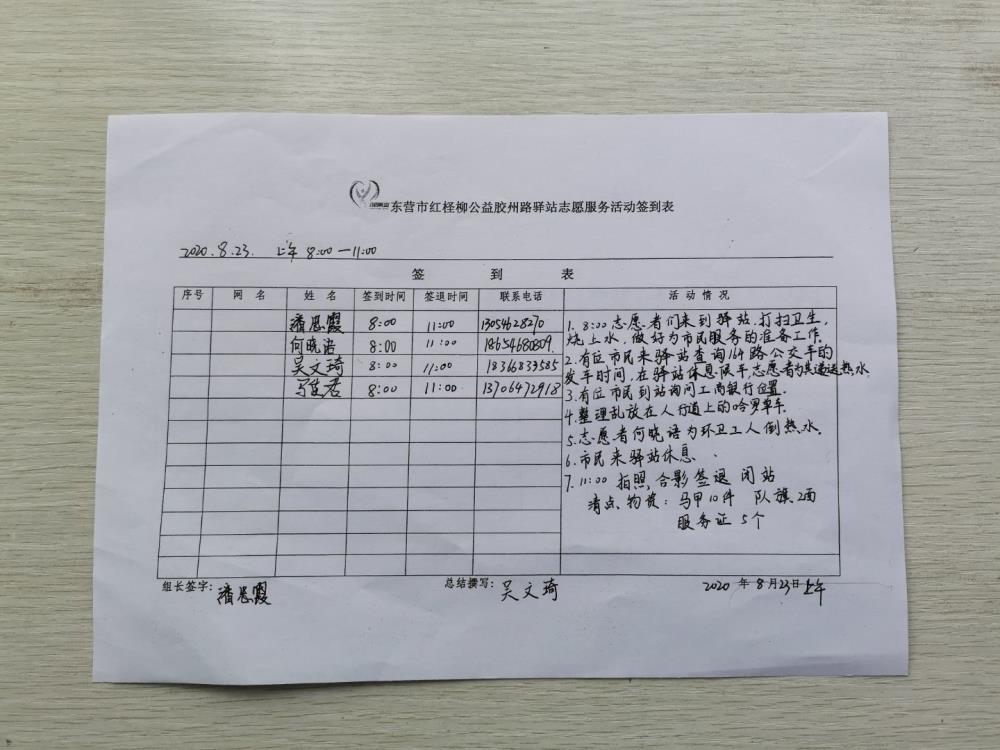 东营市红柽柳公益胶州路驿站志愿服务活动签到表
2020.8.23. 上午 8:00—11:00
签 到 表
序号 网名 姓名 签到时间 签退时间 联系电话 活动情况
潘思霞 8:00 11:00 13054628270
何晓语 8:00 11:00 18654680809
吴文琦 8:00 11:00 18366833585
8:00 11:00 13706472918
1. 8:00 志愿者们来到驿站,打扫卫生,
烧上水,做好为市民服务的准备工作。
2.有位市民来驿站查询164路公交车的
发车时间,在驿站休息候车志愿者为其递送热水
3.有位市民到站询问工商银行位置.
4.整理乱放在人行道上的哈罗单车.
5.志愿者何晓语为环卫工人倒热水.
6.市民来驿站休息.
7.11:00 拍照,合影 签退 闭站
清点物资:马甲10件 队旗2面
服务证 5个
组长签字:潘思霞 总结撰写:吴文琦 2020年8月23日上午